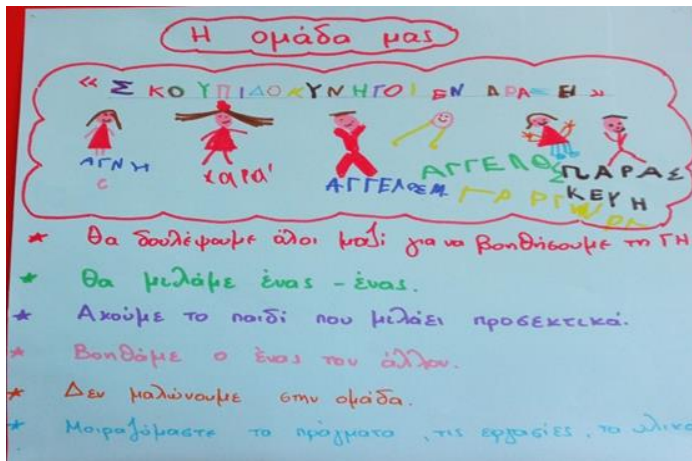 Η ομάδα μας
« ΣΚΟΥΠΙΔΟΚΥΝΗΓΟΙ ΕΝ ΔΡΑΣΕΙ »
ΑΓΝΗ
C
χαρά
ΑΓΓΕΛΟΣ Μ
ΑΓΓΕΛΟΣ
ΠΑΡΑΣ
ΚΕΥΗ
* Θα δουλέψουμε όλοι μαζί για να βοηθήσουμε τη ΓΗ
* Θα μιλάμε ένας - ένας.
* Ακούμε το παιδί που μιλάει προσεκτικά.
* Βοηθάμε ο ένας τον άλλον.
* Δεν μαλώνουμε στην ομάδα.
* Μοιραζόμαστε τα πράγματα, τις εργασίες, τα υλικά